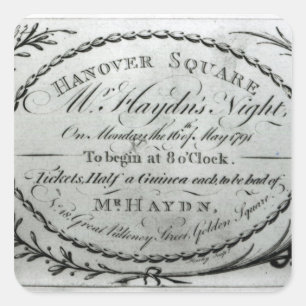 HANOVER SQUARE
Mr. Haydn's Night,
On Monday, the 16th of May 1791
To begin at 8 o'Clock.
Tickets, Half a Guinea each, to be had of
MR. HAYDN,
No. 18 Great Pulteney Street, Golden Square.